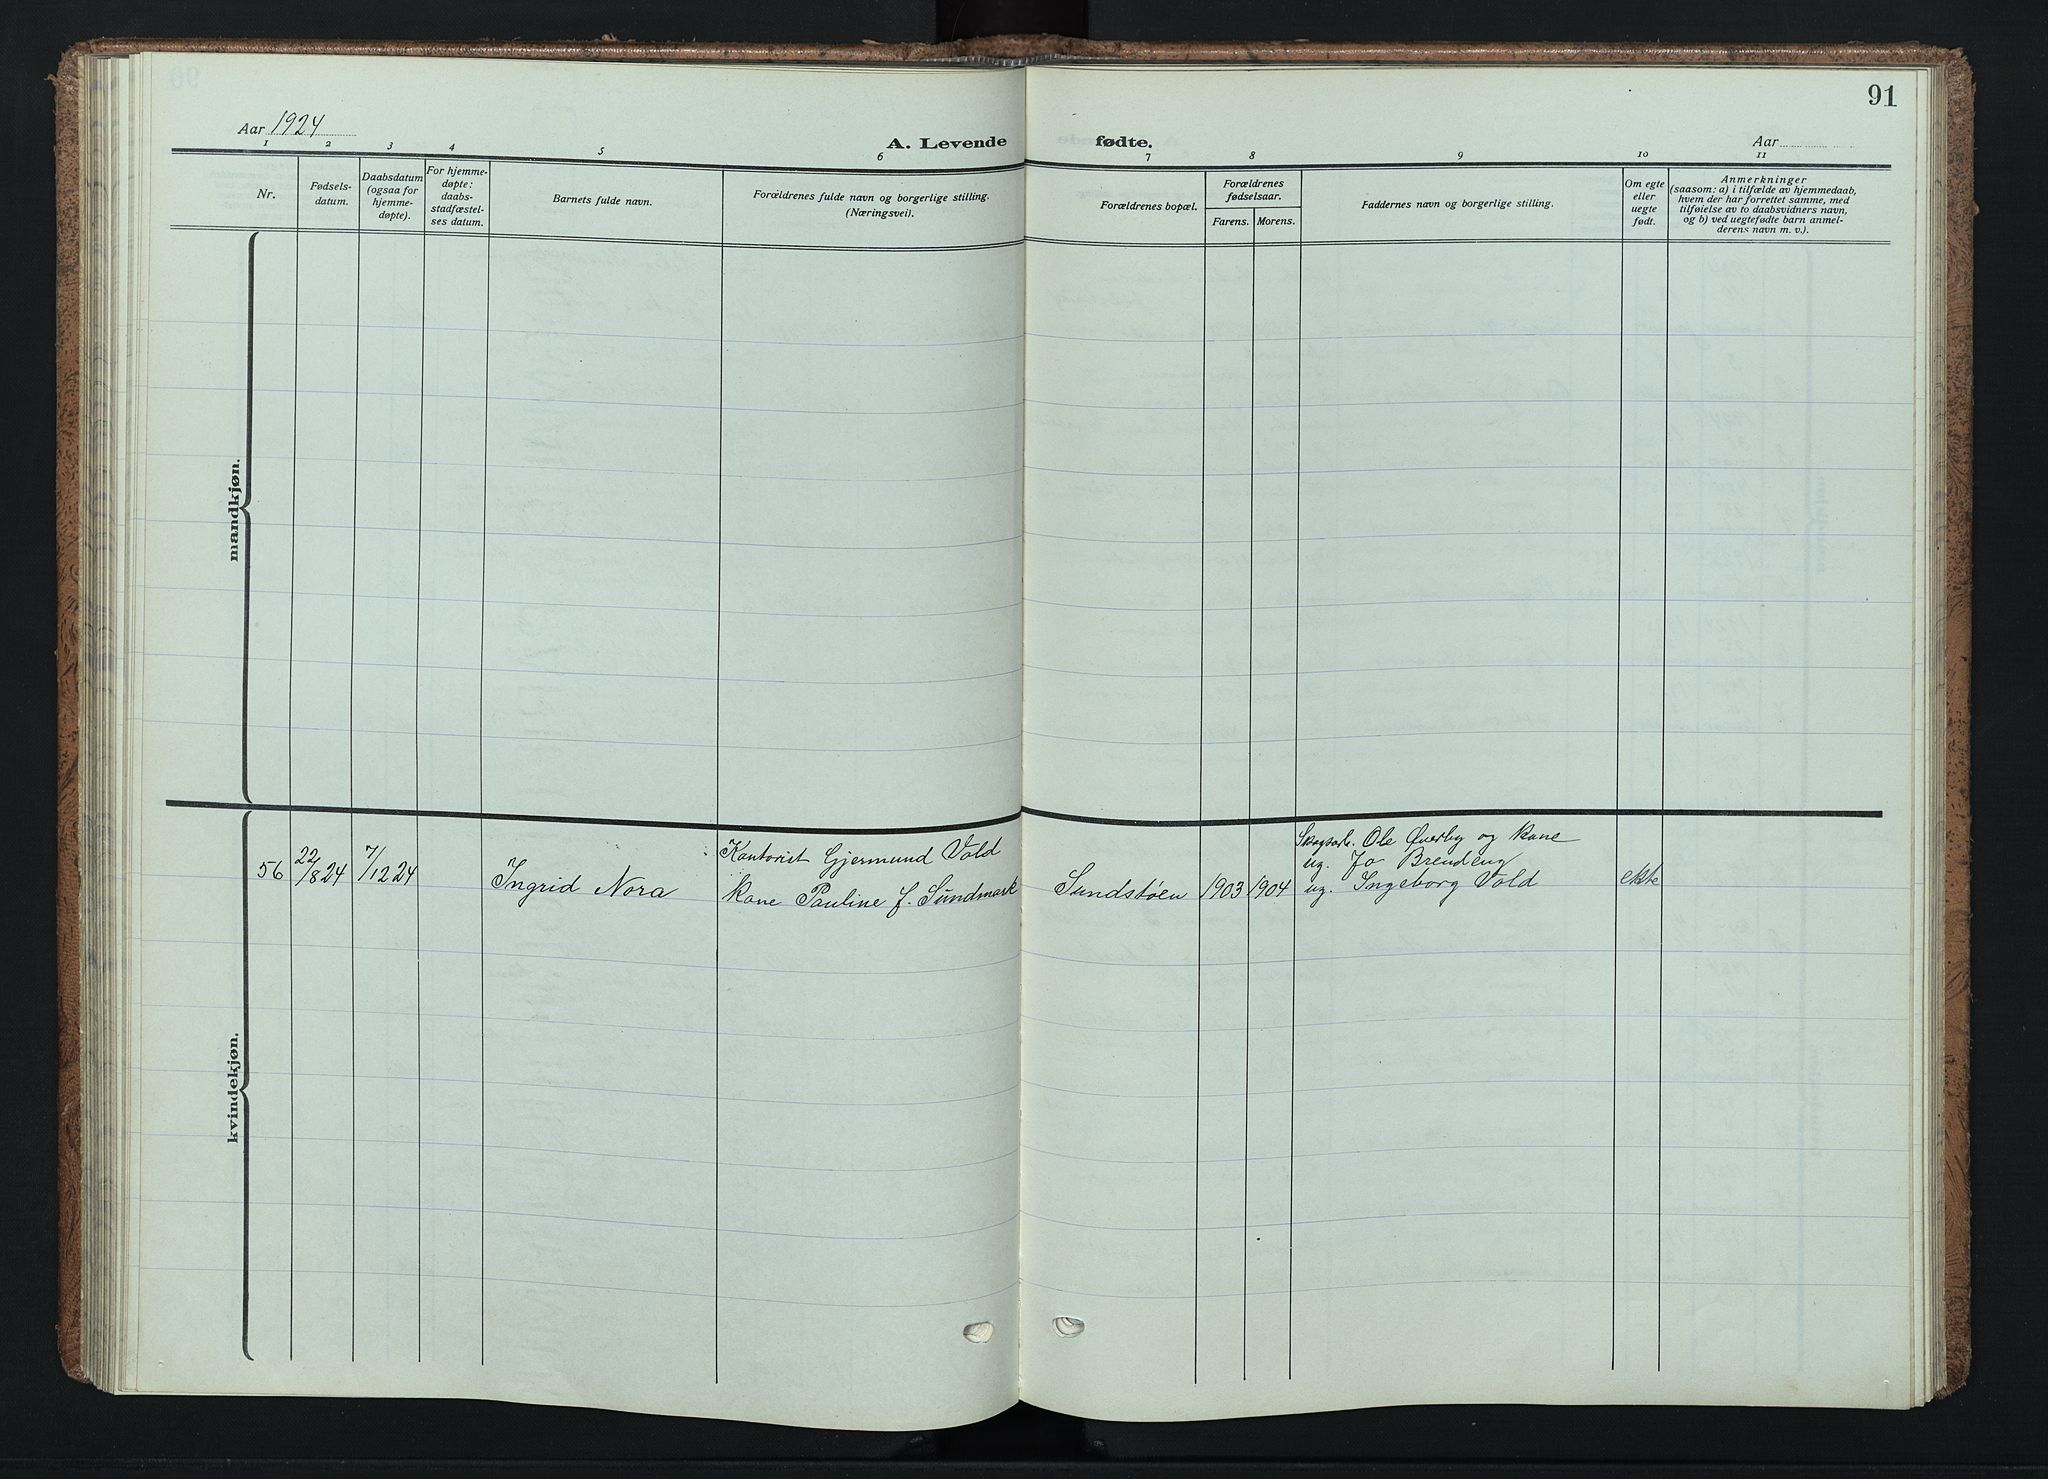 91
Aar 1924
A. Levende fødte.
Aar
1 2 3 4 5 6 7 8 9 10 11
Nr.
Fødsels-
datum.
Daabsdatum
(ogsaa for
hjemme-
døpte).
For hjemme-
døpte:
daabs-
stadfæstel-
ses datum.
Barnets fulde navn.
Forældrenes fulde navn og borgerlige stilling.
(Næringsvei).
Forældrenes bopæl.
Forældrenes
fødselsaar.
Farens. Morens.
Faddernes navn og borgerlige stilling.
Om egte
eller
uegte
født.
Anmerkninger
(saasom: a) i tilfælde av hjemmedaab,
hvem der har forrettet samme, med
tilføielse av to daabsvidners navn,
og b) ved uegtefødte barn anmel-
derens navn m. v.).
mandkjøn.
kvindekjøn.
56
22/8 24
7/12 24
Ingrid Nora
Kontorist Gjermund Vold
kone Pauline f. Sundmark
Sundstøen
1903
1904
Skogsarb. Ole Øverby og kone
ug. Jo Brendeng
ug. Ingeborg Vold
ekte